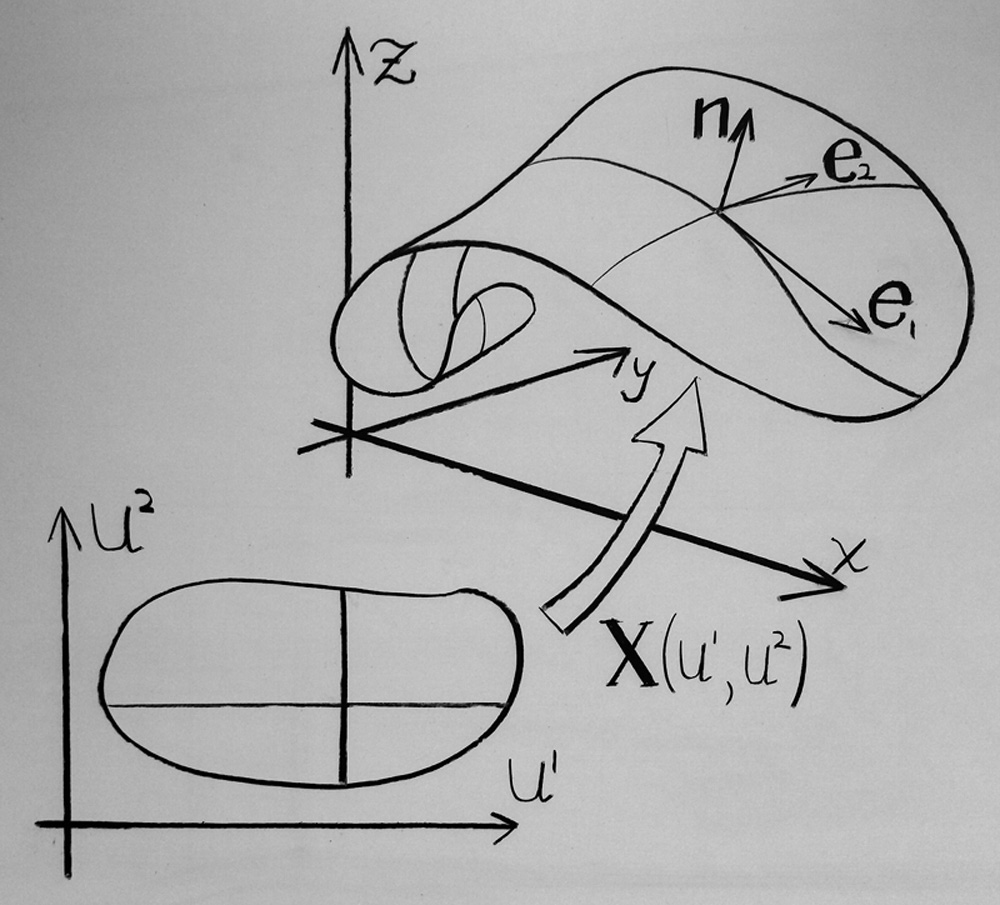 z
n
e₂
e₁
y
u²
x
X(u¹,u²)
u¹